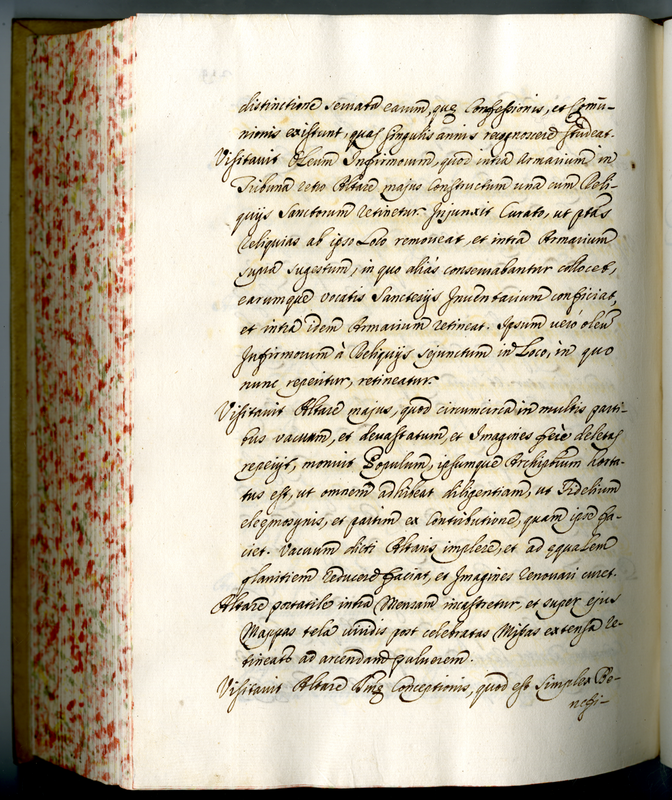 distinctione servata earum, quę Confessionis, et Comū-
nionis existunt, quas singulis annis recognoscere studeat.
Visitavit Oleum Infirmorum, quod intra Armarium in
Tribuna retro Altare majus constructum una cum Reli-
quijs Sanctorum retinetur. Injunxit Curato, ut ptas
Reliquias ab ipso Loco removeat, et intra Armarium
supra sugestum, in quo alias conservabantur collocet,
earumque vocatis Sanctesijs Inventarium conficiat,
et intra idem Armarium retineat. Ipsum verò oleū
Infirmorum à Reliquijs sejunctum in Loco, in quo
nunc reperitur, retineatur.
Visitavit Altare majus, quod circumcirca in multis parti-
bus vacuum, et devastatum, et Imagines ferè deletas
reperijt, monuit Populum, ipsumque Archiptrum horta-
tus est, ut omnem adhibeat diligentiam, ut Fidelium
eleęmosynis, et partim ex Contributione, quam ipse fa-
ciet. Vacuum dicti Altaris implere, et ad ęqualem
planitiem reducere faciat, et Imagines renovari curet.
Altare portatile intra Mensam incastretur, et super ejus
Mappas tela viridis post celebratas Missas extensa re-
tineatr ad arcendam pulverem.
Visitavit Altare Smę Conceptionis, quod est simplex Be-
nefi-